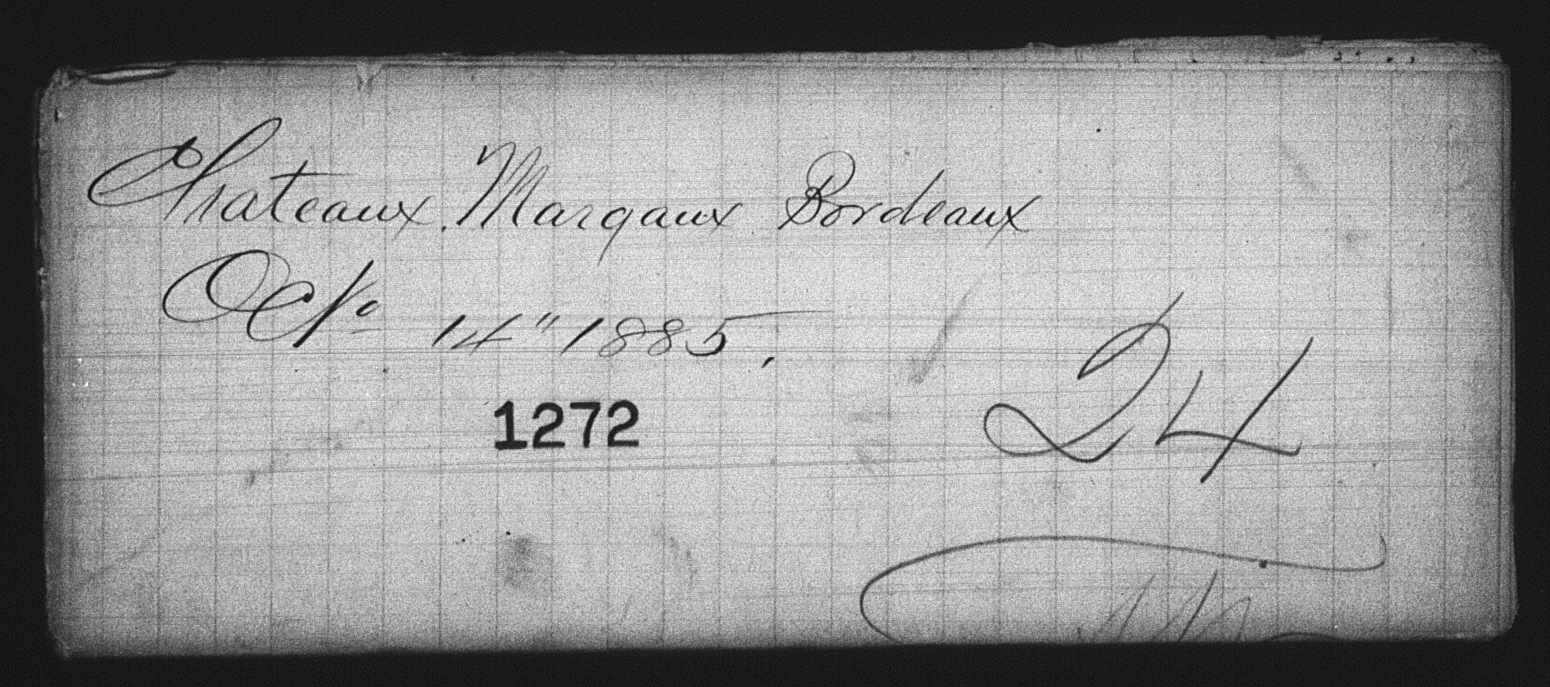 Chateaux Margaux Bordeaux
Oct. 14" 1885,
1272
24